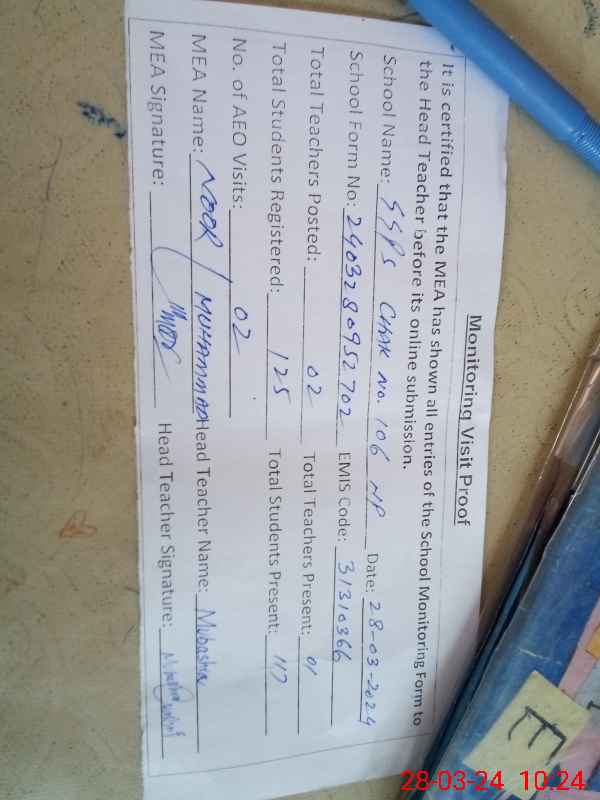 Monitoring Visit Proof
It is certified that the MEA has shown all entries of the School Monitoring Form to
the Head Teacher before its online submission.
School Name: GGPS CHAK NO. 106 NP Date: 28-03-2024
School Form No: 2403280952702 EMIS Code: 31310366
Total Teachers Posted: 02 Total Teachers Present: 01
Total Students Registered: 125 Total Students Present: 117
No. of AEO Visits: 02
MEA Name: NOOR MUHAMMAD Head Teacher Name: Mubashra
MEA Signature: Head Teacher Signature:
E
28-03-24 10:24